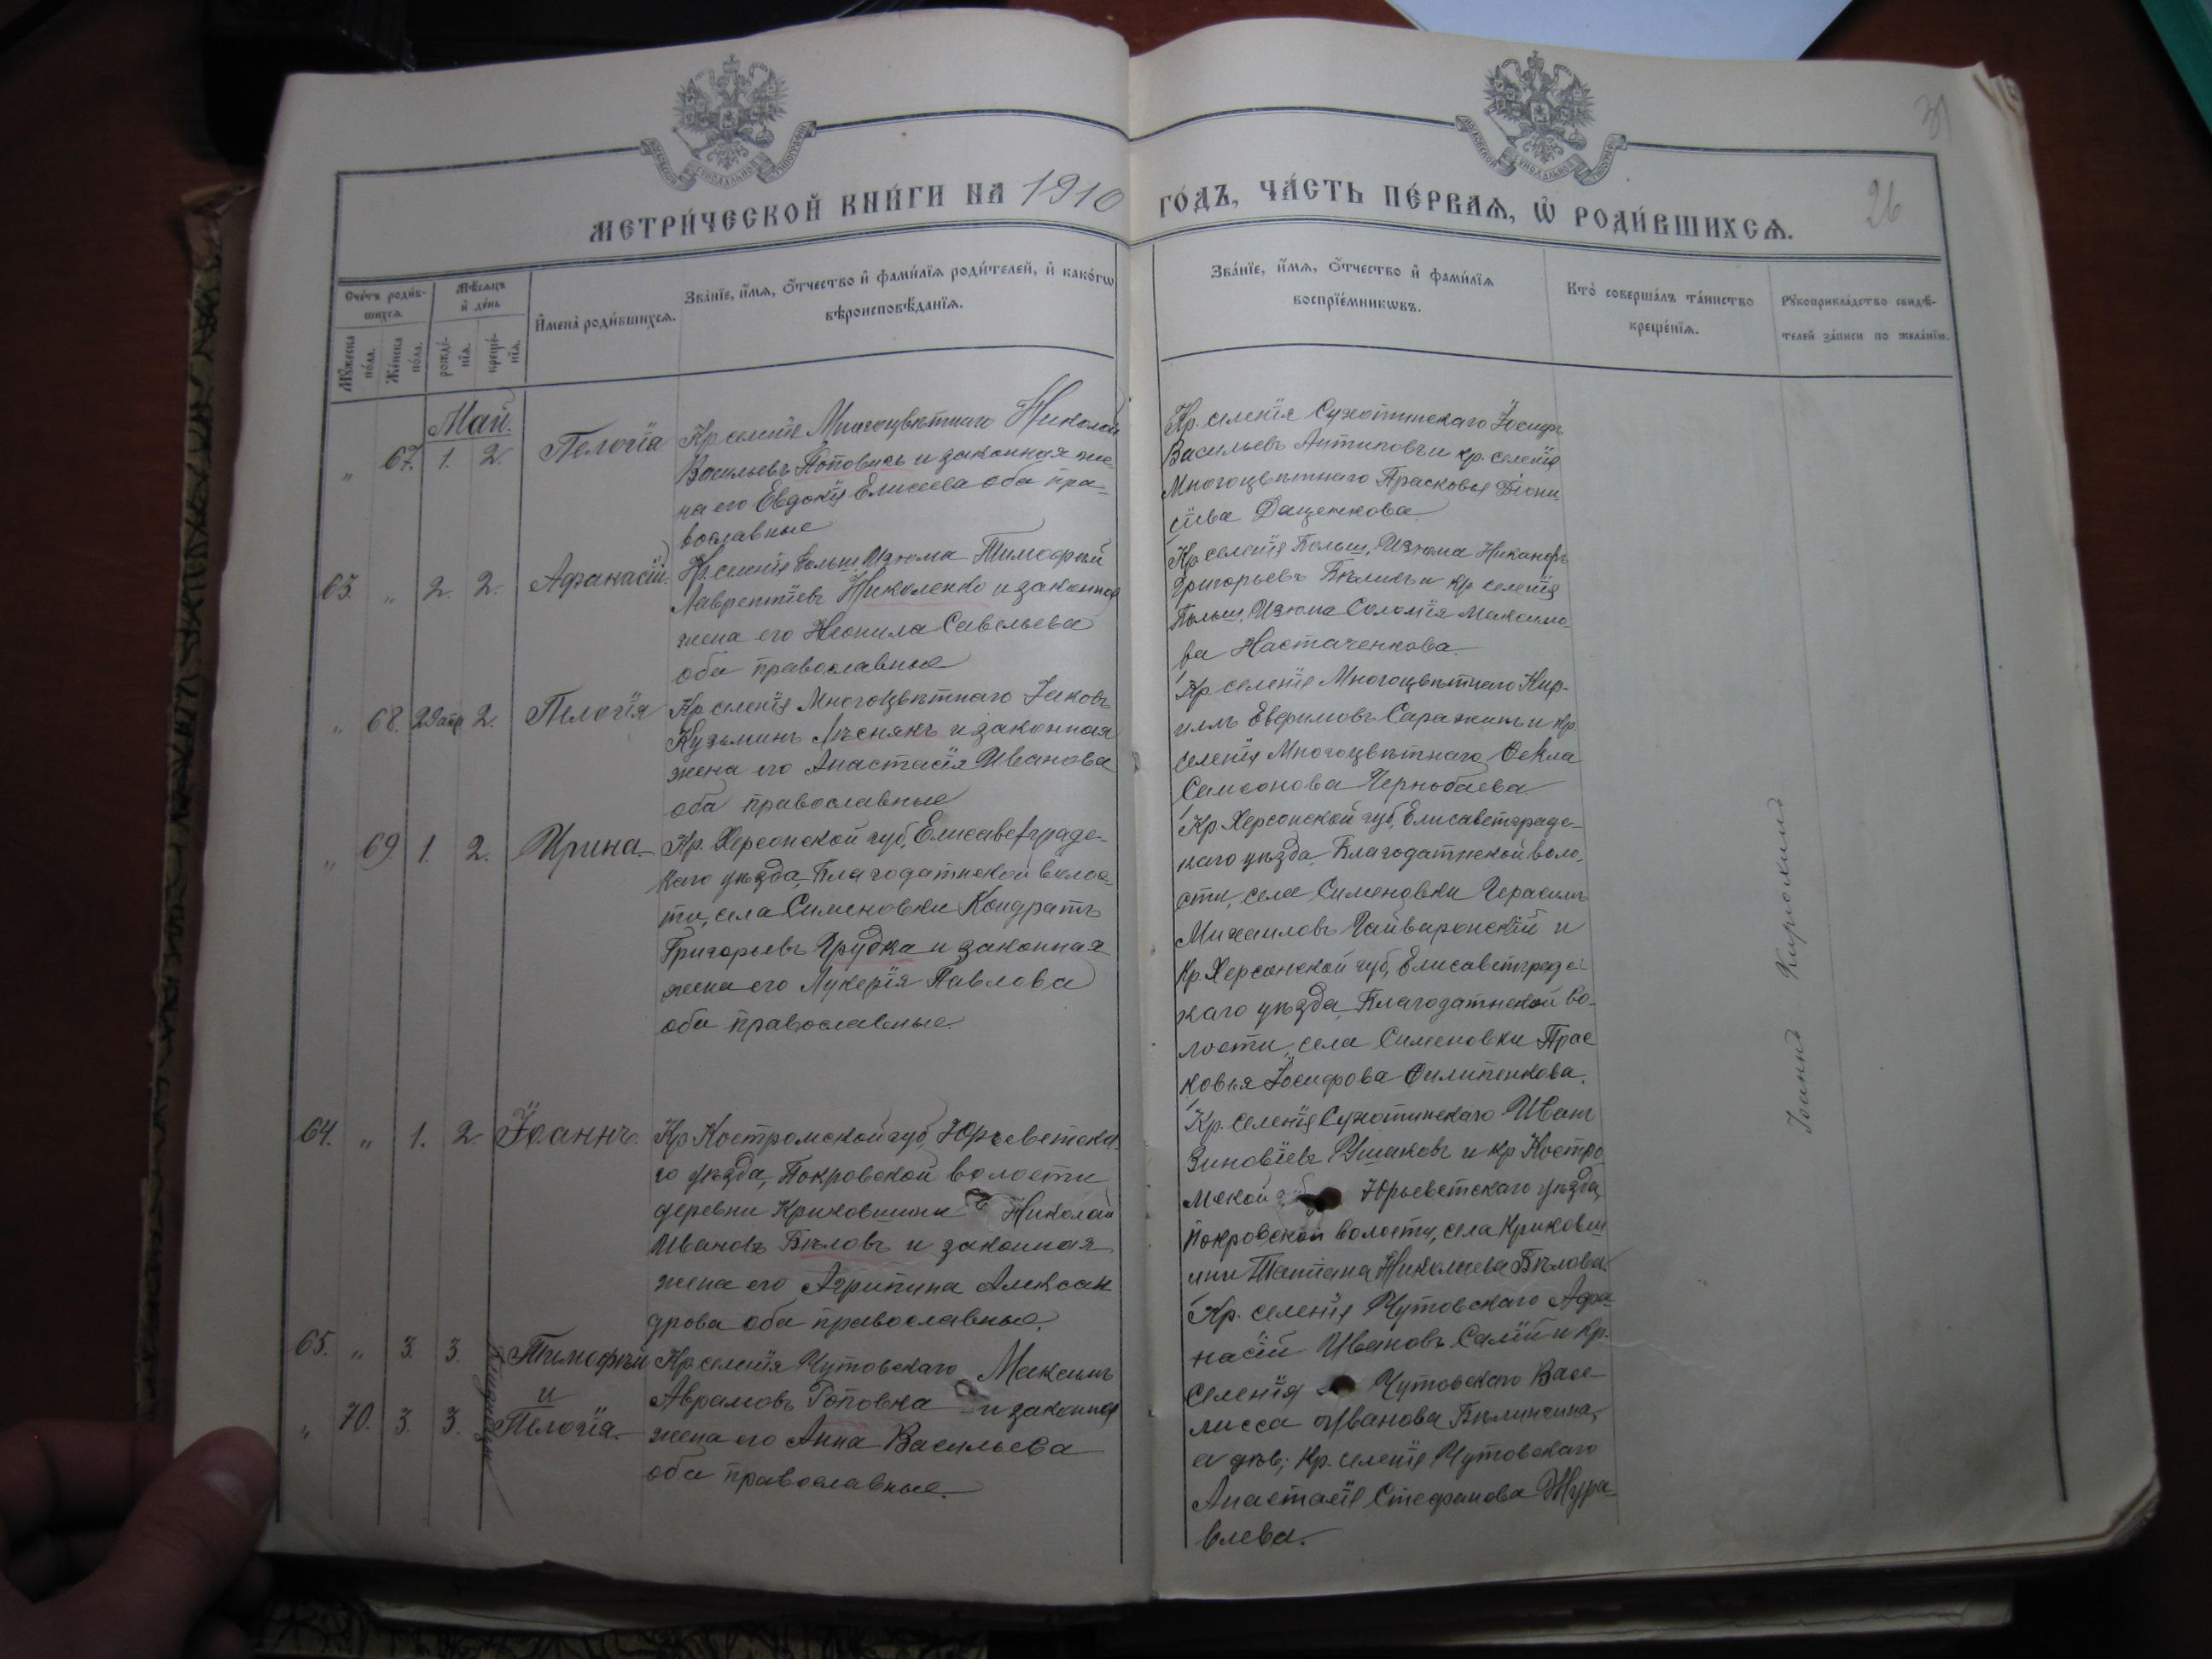 31
26
МЕТРИ́ЧЕСКОЙ КНИ́ГИ НА 1910 ГО́ДЪ, ЧА́СТЬ ПЕ́РВАѦ, Ѡ҆ РОДИ́ВШИХСѦ.
Сче́тъ роди́в-
шихсѧ
Мѣ́сѧцъ
и҆ де́нь
Мꙋ́жеска
по́ла.
Же́нска
по́ла.
рожде́-
нїѧ.
креще́-
нїѧ.
И҆мена̀ роди́вшихсѧ.
Зва́нїе, и҆́мѧ, ѻ҆́тчество и҆ фами́лїѧ роди́телей, и҆ како́гѡ
вѣроисповѣ́данїѧ.
Зва́нїе, и҆́мѧ, ѻ҆́тчество и҆ фами́лїѧ
воспрїе́мникѡвъ.
Кто̀ соверша́лъ та́инство
креще́нїѧ.
Рꙋкоприкла́дство свидѣ́-
телей за́писи по жела́нїю.
Май.
" 67. 1. 2. Пелогія
Кр. селенія Многоцвѣтнаго Николай
Васильевъ Поповичъ и законная же-
на его Евдокія Елисеева оба пра-
вославные
Кр. селенія Сухотинскаго Іосифъ
Васильевъ Антиповъ и кр. селенія
Многоцвѣтнаго Прасковья Діони-
сіева Даценкова
63. " 2. 2. Афанасій.
Кр. селенія Больш. Изюма Тимофей
Лаврентіевъ Николенко и законная
жена его Неонила Савельева
оба православные
Кр. селенія Больш. Изюма Никаноръ
Григорьевъ Бѣликъ и кр. селенія
Больш. Изюма Соломія Максимо-
ва Настаченкова.
" 68. 29 апр 2. Пелогія
Кр. селенія Многоцвѣтнаго Іаковъ
Кузьминъ Лѣснякъ и законная
жена его Анастасія Иванова
оба православные
Кр. селенія Многоцвѣтнаго Кир-
иллъ Евфимовъ Саражинъ и кр.
селенія Многоцвѣтнаго Ѳекла
Самсонова Чернобаева
" 69. 1. 2. Ирина.
Кр. Херсонской губ, Елисаветградс-
каго уѣзда, Благодатнской волос-
ти, села Сименовки Кондратъ
Григорьевъ Грубка и законная
жена его Лукерія Павлова
оба православные.
Кр. Херсонской губ, Елисаветградс-
каго уѣзда, Благодатнской воло-
сти, села Сименовки Герасимъ
Михаиловъ Гайваронскій и
кр. Херсонской губ, Елисаветградс-
каго уѣзда, Благодатнской во-
лости, села Сименовки Прас
ковья Іосифова Филипенкова.
64. " 1. 2. Іоаннъ.
Кр. Костромской губ, Юрьеветска
го уѣзда, Покровской волости
деревни Криковшини Николай
Ивановъ Бѣловъ и законная
жена его Агрипина Александ
рова оба православные.
Кр. селенія Сухотинскаго Иванъ
Зиновіевъ Ушаковъ и кр. Костро
мской Юрьеветскаго уѣзда,
Покровской волости, села Криковш
ини Татіана Николаева Бѣлова.
65. " 3. 3. Тимофѣй
и
" 70. 3. 3. Пелогія.
Близнецы
Кр. селенія Чутовскаго Максимъ
Аврамовъ Головка и законная
жена его Анна Васильева
оба православные.
Кр. селенія Чутовскаго Афа-
насій Ивановъ Салій и кр.
селенія Чутовскаго Васи-
лисса Иванова Бѣлинчина,
а дѣв; кр. селенія Чутовскаго
Анастасія Стефанова Жура-
влева.
Іоаннъ